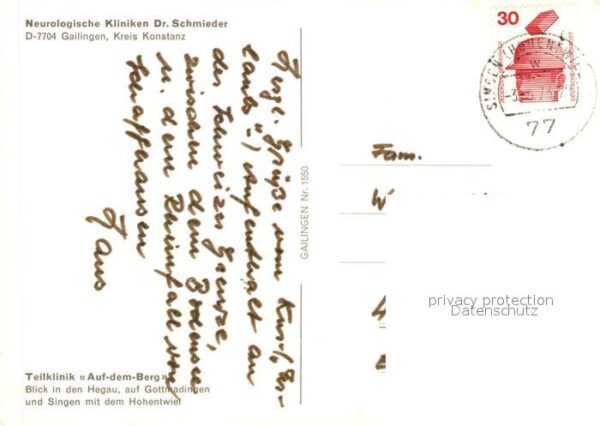 Neurologische Kliniken Dr. Schmieder
D-7704 Gailingen, Kreis Konstanz
Herzl. Grüße vom Kur-(, Er-
laubs"-) Aufenthalt an
der Schweizer Grenze,
zwischen dem Bodensee
u. dem Rheinfall von
Schaffhausen
Hans
Teilklinik «Auf-dem-Berg»
Blick in den Hegau, auf Gottmadingen
und Singen mit dem Hohentwiel
GAILINGEN Nr. 1550
30
SINGEN (HOHENTWIEL)
77
Fam.
W
privacy protection
Datenschutz